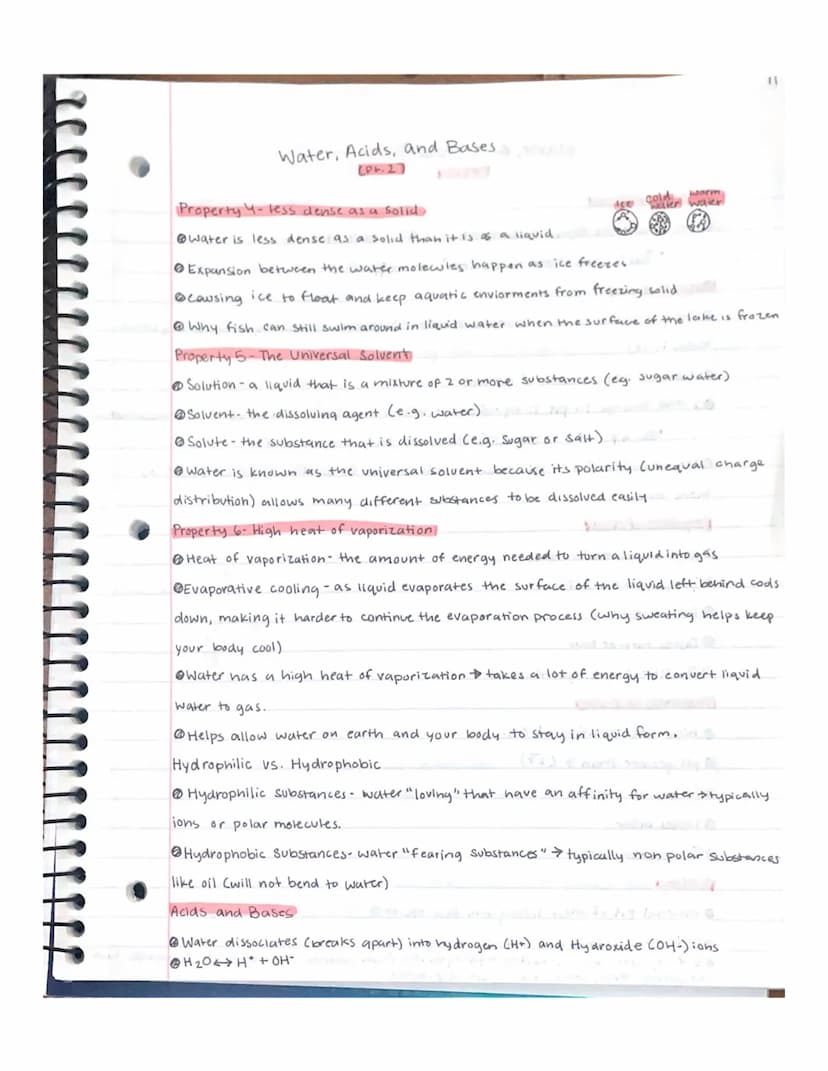 11
Water, Acids, and Bases
(Pt. 2)
Ice cold water warm water
Property 4- less dense as a solid
Water is less dense as a solid than it is as a liquid.
Expansion between the water molecules happen as ice freezes
Causing ice to float and keep aquatic enviorments from freezing solid
Why fish can still swim around in liquid water when the surface of the lake is frozen
Property 5- The Universal Solvent
Solution - a liquid that is a mixture of 2 or more substances (eg. sugar water)
Solvent- the dissolving agent (e.g. water)
Solute - the substance that is dissolved (e.g. sugar or salt)
Water is known as the universal solvent because its polarity (unequal charge
distribution) allows many different substances to be dissolved easily
Property 6- High heat of vaporization
Heat of vaporization- the amount of energy needed to turn a liquid into gas
Evaporative cooling - as liquid evaporates the surface of the liquid left behind cools
down, making it harder to continue the evaporation process (why sweating helps keep
your body cool)
Water has a high heat of vaporization → takes a lot of energy to convert liquid
water to gas.
Helps allow water on earth and your body to stay in liquid form.
Hydrophilic vs. Hydrophobic
Hydrophilic substances- water "loving" that have an affinity for water → typically
ions or polar molecules.
Hydrophobic Substances- water "fearing substances" → typically non polar substances
like oil (will not bend to water)
Acids and Bases
Water dissociates (breaks apart) into hydrogen (H+) and Hydroxide (OH-) ions
H₂O ↔ H⁺ + OH⁻